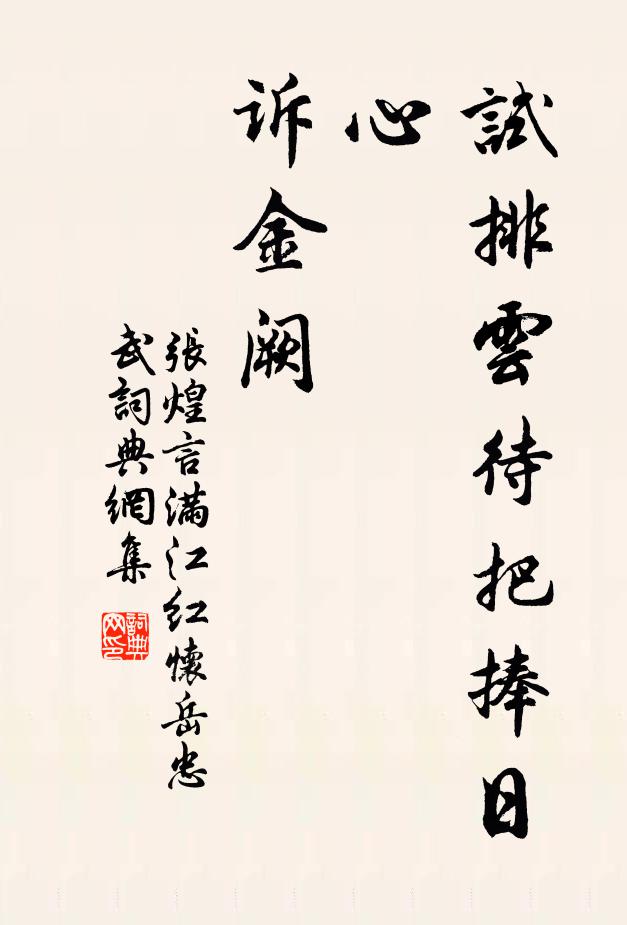 試排雲待把捧日
心
訴金阙
張煌言满江红懷岳忠
武詞典網集
詞典
网印